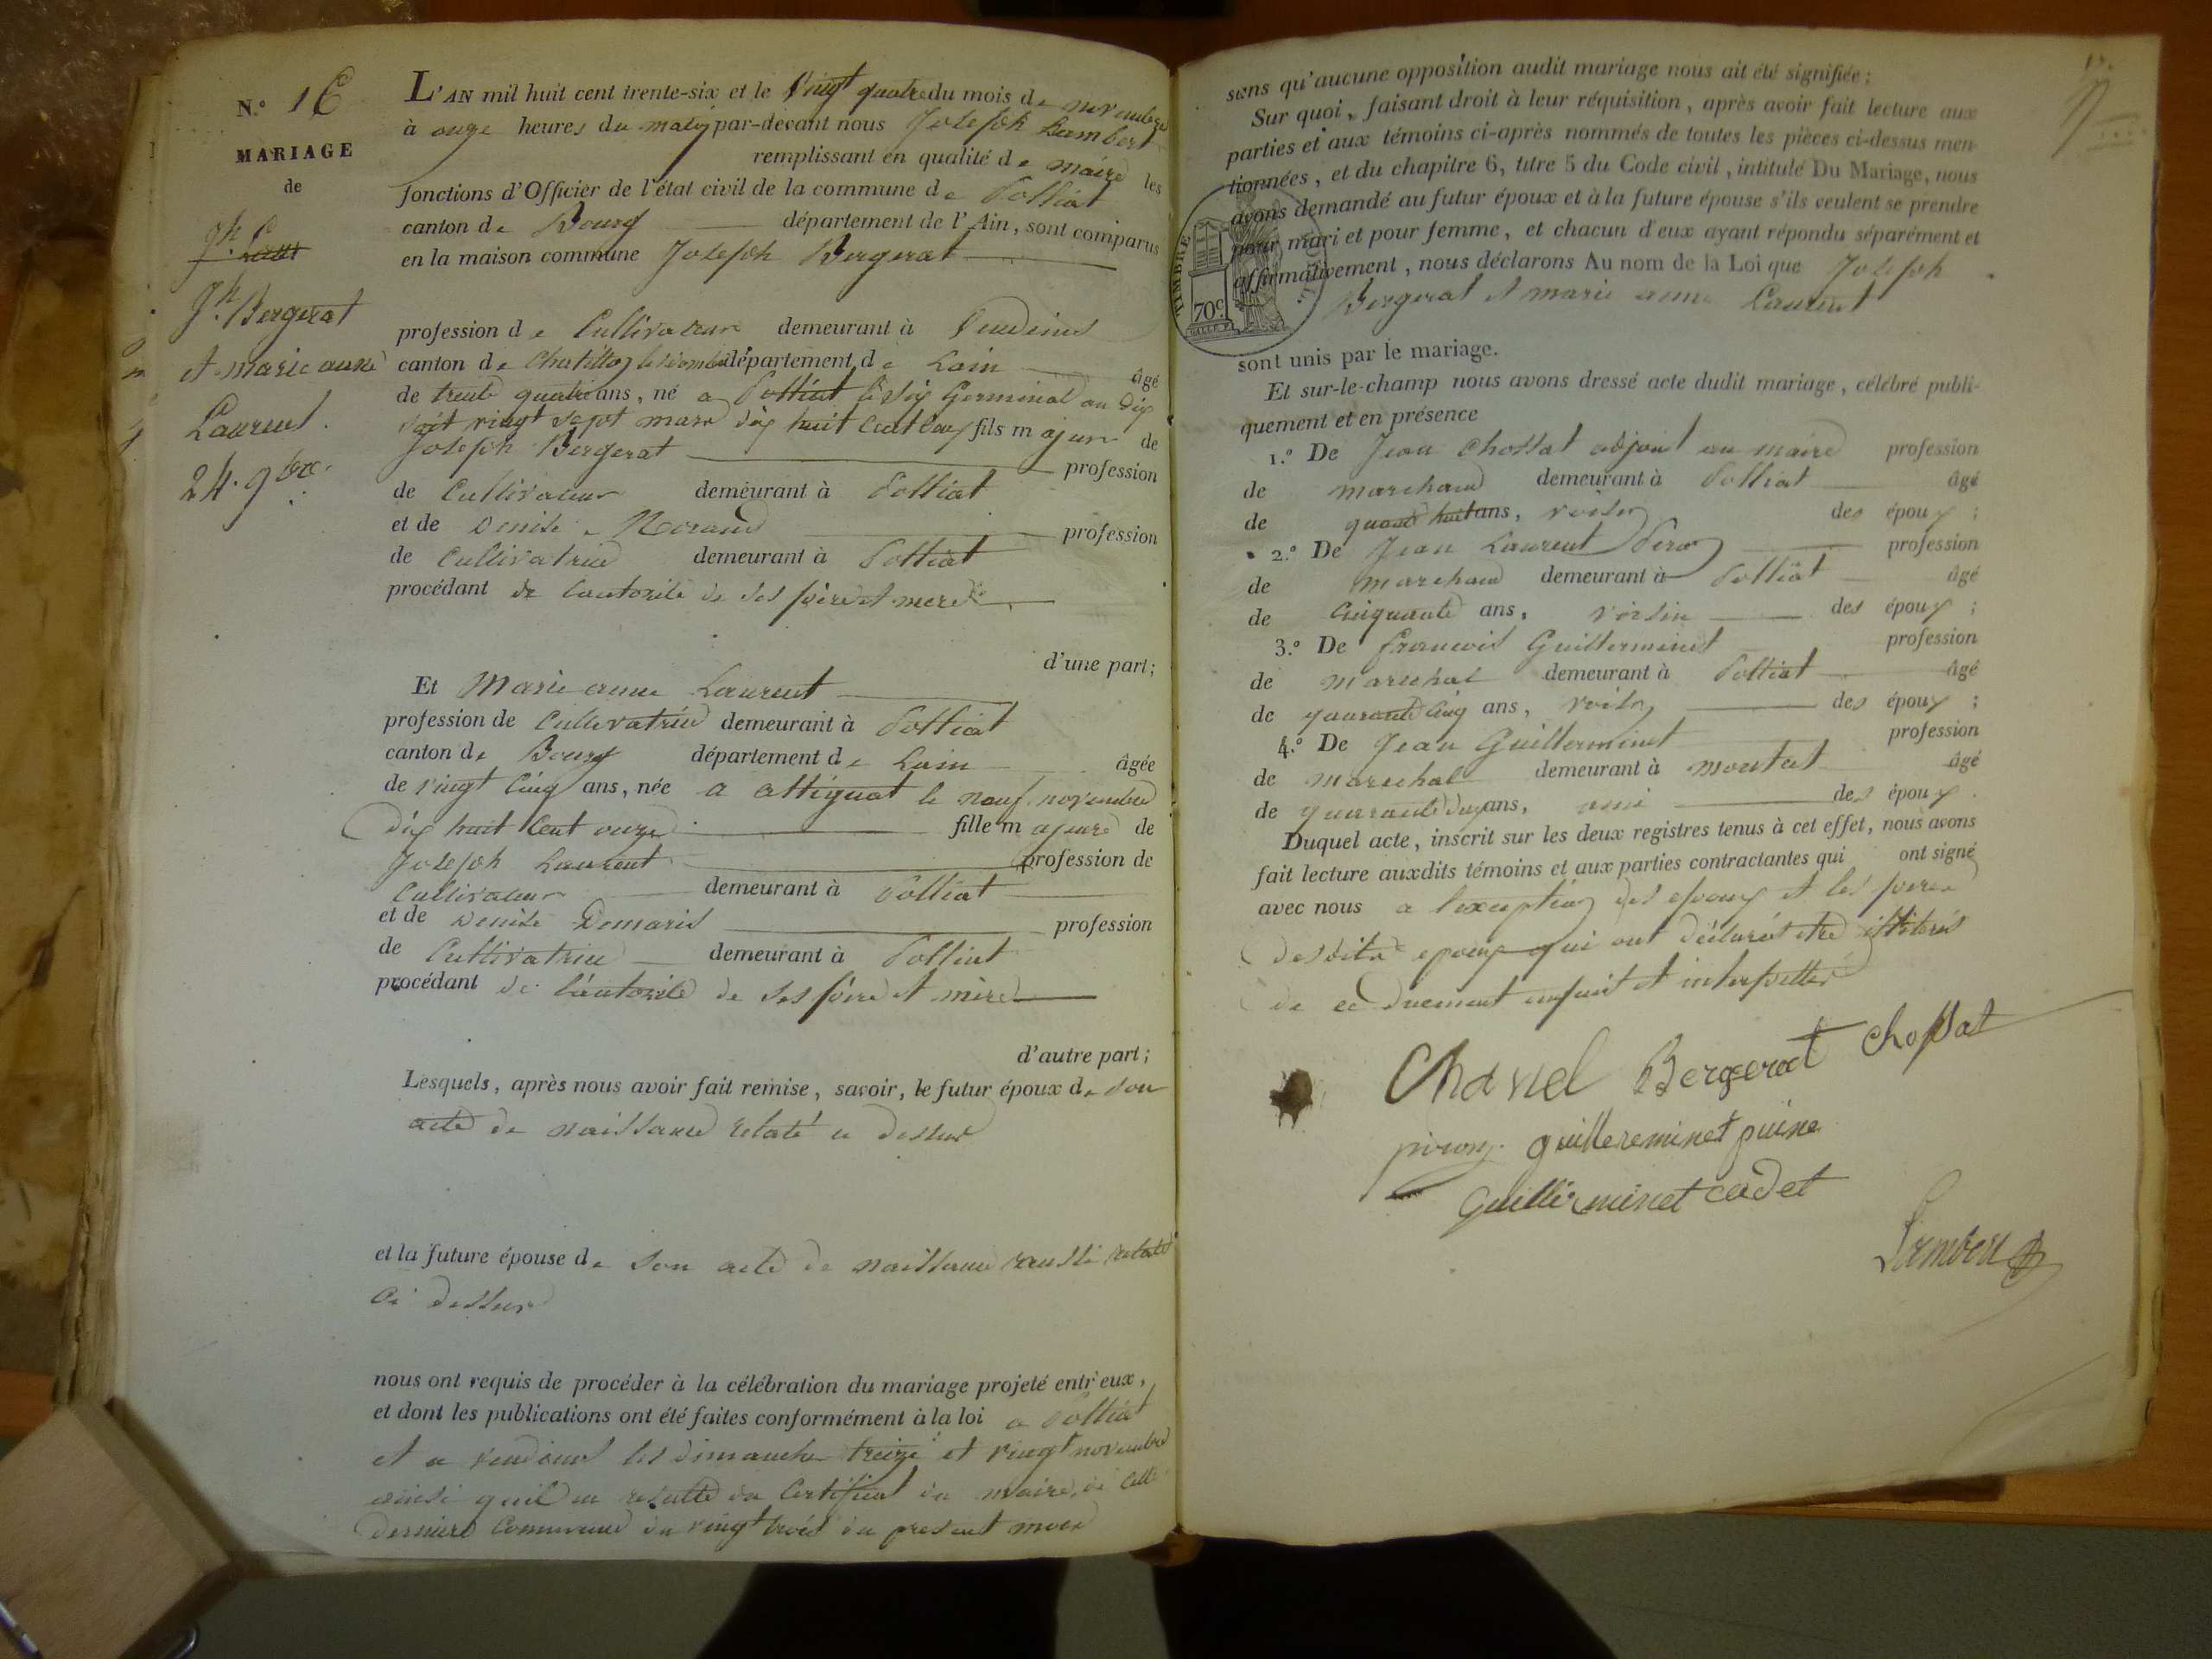 N.° 16
MARIAGE
de
Jh. Bergerat
et marie anne
Laurent.
24. 9bre.
L'AN mil huit cent trente-six et le vingt quatre du mois de novembre
à onze heures du matin par-devant nous Joseph Lambert
remplissant en qualité de maire les
fonctions d'Officier de l'état civil de la commune de Polliat
canton de Bourg département de l'Ain, sont comparus
en la maison commune Joseph Bergerat
profession de Cultivateur demeurant à Vandeins
canton de Chatillon les dombes département de Lain âgé
de trente quatre ans, né a Polliat le six Germinal an dix
soit vingt sept mars dix huit cent deux fils majeur de
Joseph Bergerat profession
de Cultivateur demeurant à Polliat
et de Denise Morand profession
de Cultivatrice demeurant à Polliat
procédant de lautorité de ses père et mere
d'une part;
Et Marie anne Laurent
profession de Cultivatrice demeurant à Polliat
canton de Bourg département de Lain âgée
de vingt cinq ans, née a attignat le neuf novembre
dix huit cent onze fille majeure de
Joseph Laurent profession de
Cultivateur demeurant à Polliat
et de Denise Demaris profession
de Cultivatrice demeurant à Polliat
procédant de l'autorité de ses père et mère
d'autre part;
Lesquels, après nous avoir fait remise, savoir, le futur époux de son
acte de naissance relaté ci dessus
et la future épouse de son acte de naissance aussi relaté
ci dessus
nous ont requis de procéder à la célébration du mariage projeté entr'eux,
et dont les publications ont été faites conformément à la loi a Polliat
et a vandeins les dimanche treize et vingt novembre
ainsi quil en resulte du certificat du maire de cette
derniere commune du vingt trois du present mois
sans qu'aucune opposition audit mariage nous ait été signifiée;
Sur quoi, faisant droit à leur réquisition, après avoir fait lecture aux
parties et aux témoins ci-après nommés de toutes les pièces ci-dessus men-
tionnées, et du chapitre 6, titre 5 du Code civil, intitulé Du Mariage, nous
avons demandé au futur époux et à la future épouse s'ils veulent se prendre
pour mari et pour femme, et chacun d'eux ayant répondu séparément et
affirmativement, nous déclarons Au nom de la Loi que Joseph
Bergerat et marie anne Laurent
TIMBRE
70c
sont unis par le mariage.
Et sur-le-champ nous avons dressé acte dudit mariage, célébré publi-
quement et en présence
1.° De Jean Chossat adjoint au maire profession
de marchand demeurant à Polliat âgé
de quarante huit ans, voisin des époux;
2.° De Jean Laurent Piron profession
de marchand demeurant à Polliat âgé
de cinquante ans, voisin des époux;
3.° De francois Guillerminet profession
de maréchal demeurant à Polliat âgé
de quarante cinq ans, voisin des époux;
4.° De Jean Guillerminet profession
de marechal demeurant à montat âgé
de quarante deux ans, ami des époux.
Duquel acte, inscrit sur les deux registres tenus à cet effet, nous avons
fait lecture auxdits témoins et aux parties contractantes qui ont signé
avec nous a l'exception des epoux et les peres
desdits epoux qui ont déclarés etre illiterés
de ce duement enquis et interpellés
Charvel Bergerat Chossat
piron guillereminet puine
Guillerminet cadet
Lambert